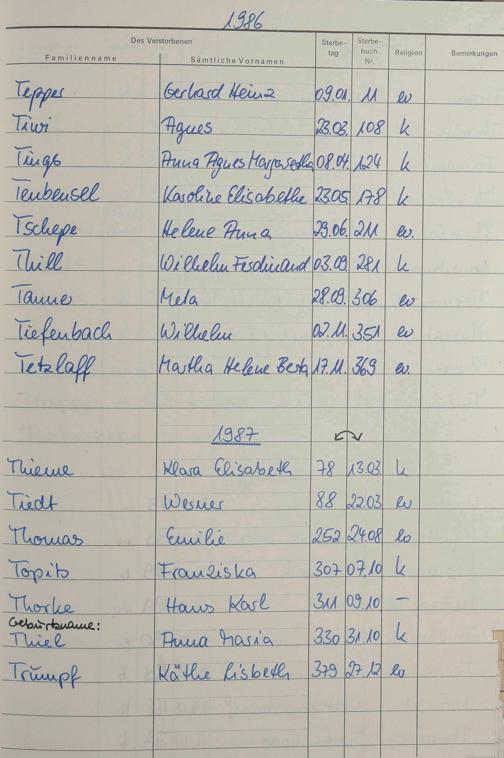 1986
Des Verstorbenen
Familienname Sämtliche Vornamen Sterbe-tag Sterbe-buch Nr. Religion Bemerkungen
Tepper Gerhard Heinz 09.01. 11 ev
Tiwi Agnes 23.03. 108 k
Tings Anna Agnes Margaretha 08.04. 124 k
Teubensel Karoline Elisabethe 23.05. 178 k
Tschepe Helene Anna 29.06. 211 ev.
Thill Wilhelm Ferdinand 03.09. 281 k
Tanne Meta 28.09. 306 ev
Tiefenbach Wilhelm 02.11. 351 ev
Tetzlaff Martha Helene Berta 17.11. 369 ev.
1987
Thieme Klara Elisabeth 78 13.03. k
Tiedt Werner 88 22.03. ev
Thomas Emilie 252 24.08 ev
Topits Franziska 307 07.10 k
Thorke Hans Karl 311 09.10 –
Geburtsname:
Thiel Anna Maria 330 31.10 k
Trumpf Käthe Lisbeth 379 27.12 ev